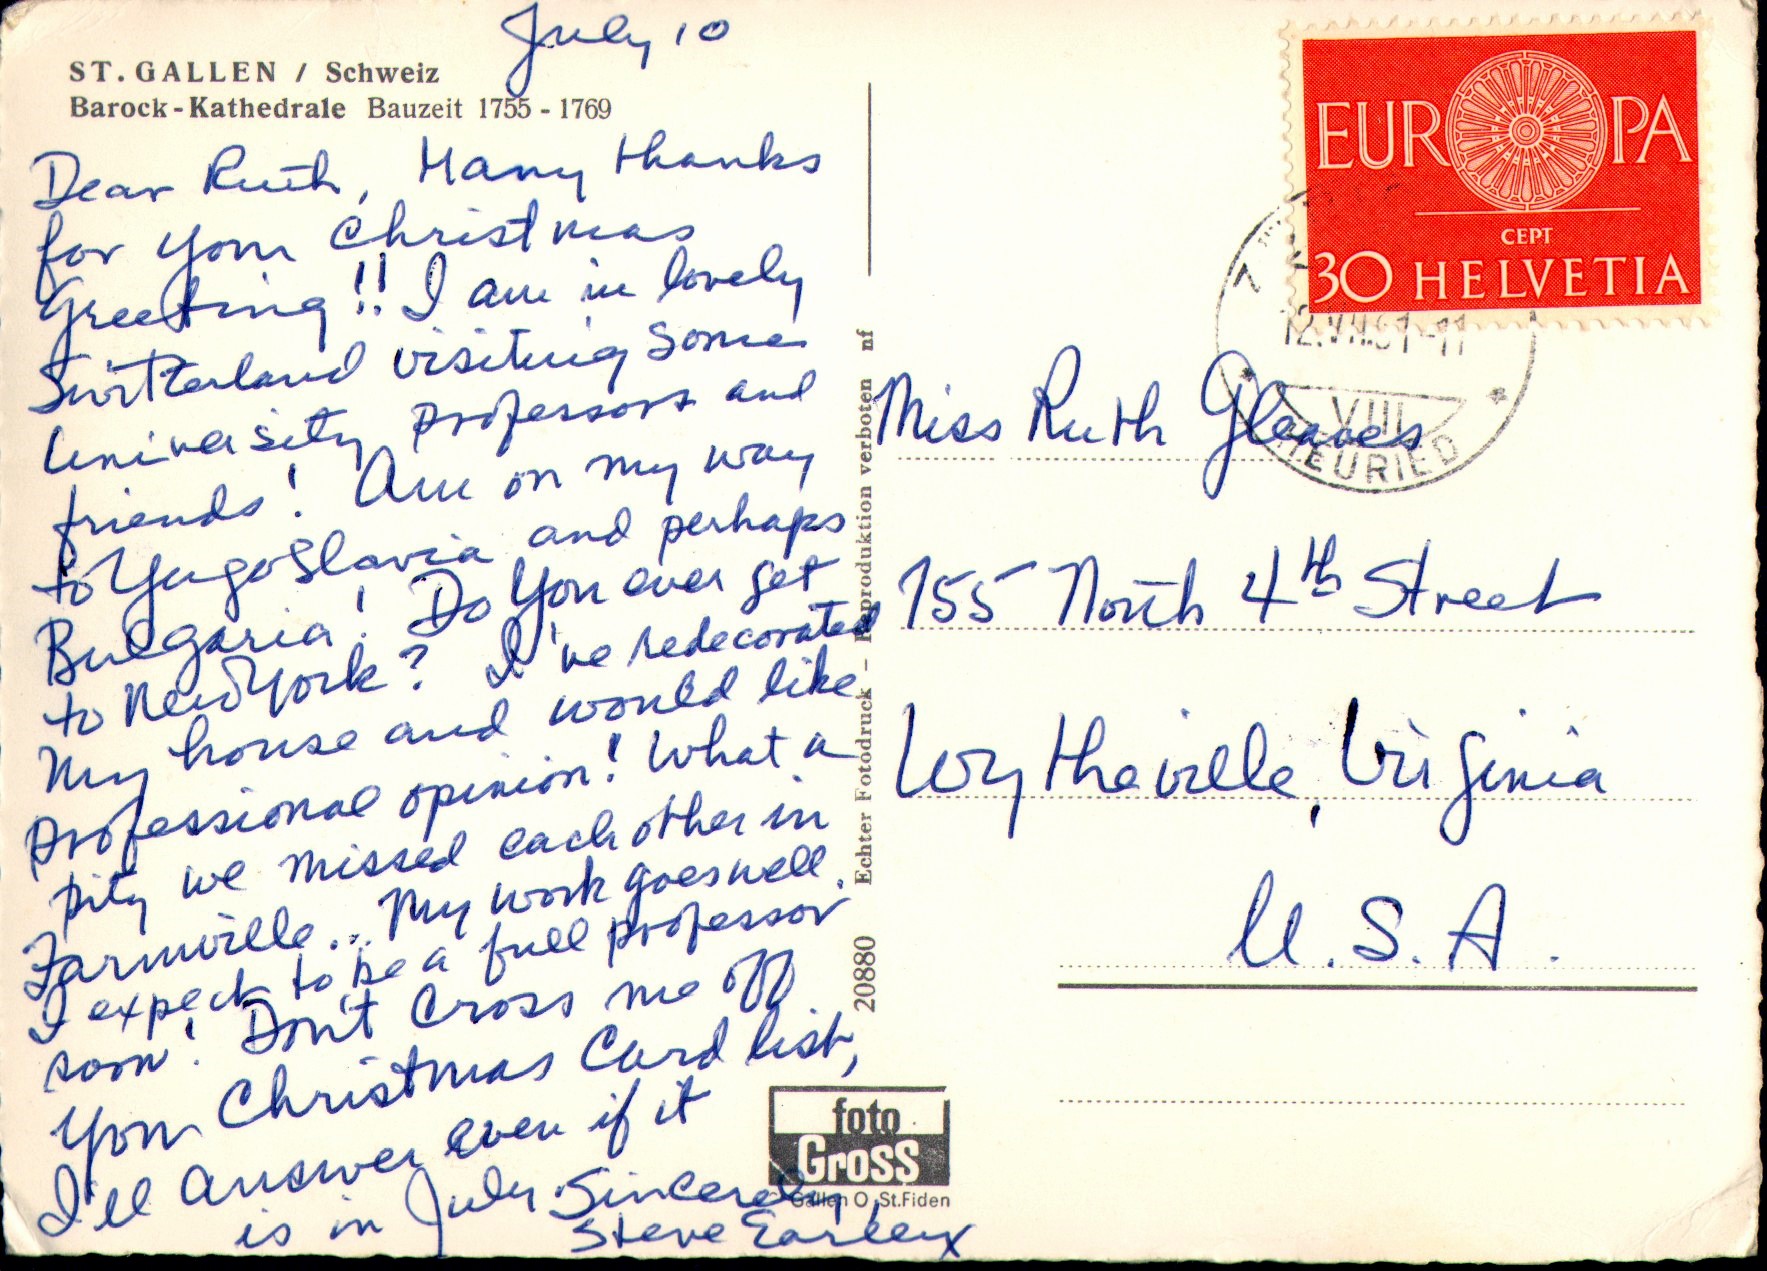 July 10
ST. GALLEN / Schweiz
Barock-Kathedrale Bauzeit 1755 - 1769
Dear Ruth, Many thanks
for your Christmas
Greeting!! I am in lovely
Switzerland visiting some
University professors and
friends! Am on my way
to Yugoslavia and perhaps
Bulgaria! Do you ever get
to New York? I've redecorated
my house and would like
professional opinion! What a
pity we missed each other in
Farmville... My work goes well.
I expect to be a full professor
soon! Don't cross me off
your Christmas Card list,
I'll answer even if it
is in July. Sincerely,
Steve
20880 Echter Fotodruck - Reproduktion verboten nf
foto
Gross
St. Gallen O, St.Fiden
EUROPA
CEPT
30 HELVETIA
12.VII.61-11
VIII
HEURIED
Miss Ruth Gleaves
155 North 4th Street
Wytheville, Virginia
U.S.A.